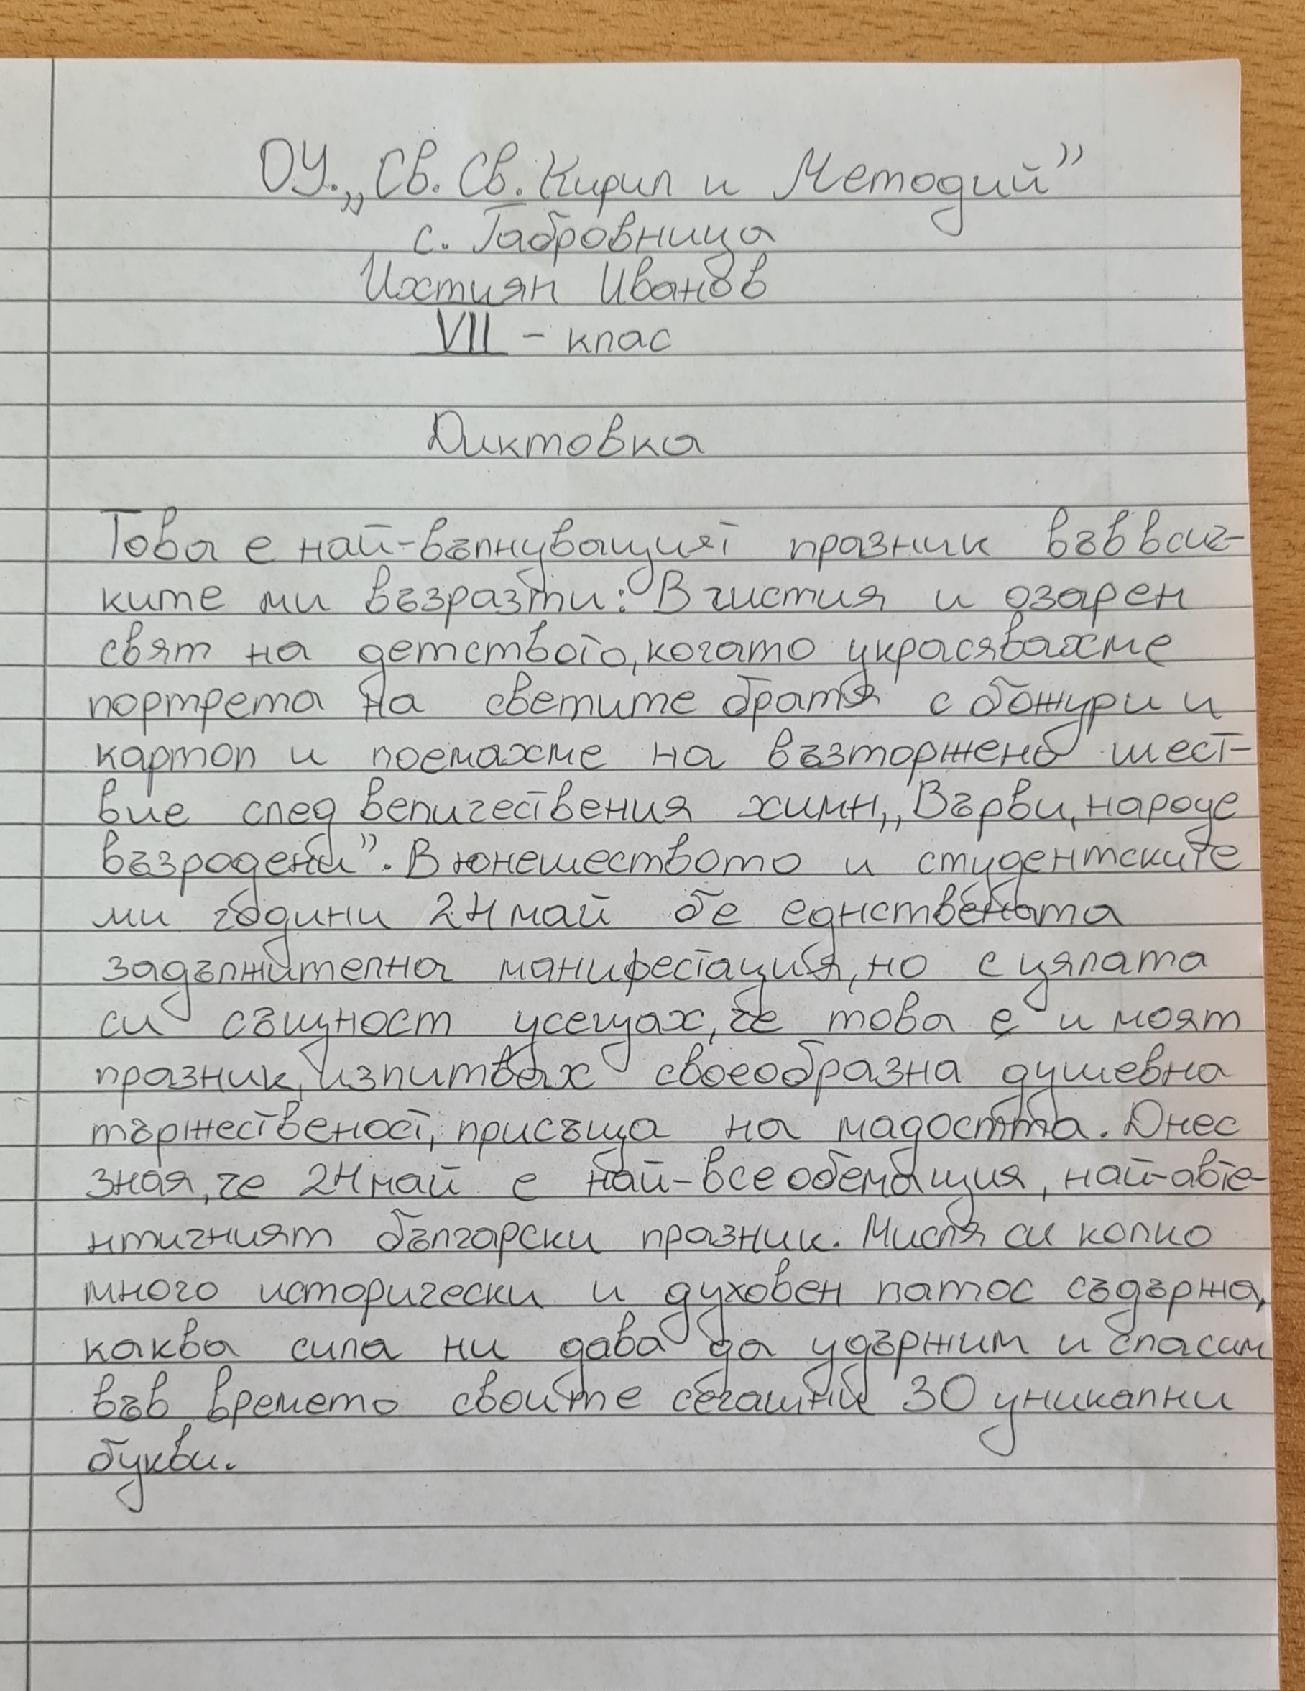 ОУ. „Св. Св. Кирил и Методий”
с. Габровница
Ихтиян Иванов
VII - клас
Диктовка
Това е най-вълнуващият празник във всич-
ките ми възрасти: В чистия и озарен
свят на детството, когато украсявахме
портрета на светите братя с божури и
картоп и поемахме на възторжено шест-
вие след величествения химн „Върви, народе
възродени”. В юнешеството и студентските
ми години 24 май бе еднствената
задължителна манифестация, но с цялата
си същност усещах, че това е и моят
празник, изпитвах своеобразна душевна
тържественост, присъща на мадостта. Днес
зная, че 24 май е най-все обемащия, най-авте-
нтичният български празник. Мисля си колко
много исторически и духовен патос съдържа,
каква сила ни дава да удържим и спасим
във времето своите сегашни 30 уникални
букви.